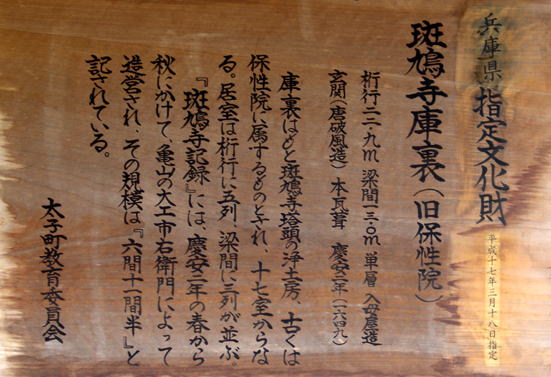 兵庫県指定文化財
平成十七年三月十八日指定
斑鳩寺庫裏(旧保性院)
桁行二二・九m 梁間一三・〇m 単層 入母屋造
玄関(唐破風造) 本瓦葺 慶安二年(一六四九)
庫裏はもと斑鳩寺塔頭の浄土房、古くは
保性院に属するものとされ、十七室からな
る。居室は桁行に五列 梁間に三列が並ぶ。
『斑鳩寺記録』には、慶安二年の春から
秋にかけて、亀山の大工市右衛門によって
造営され、その規模は『六間十一間半』と
記されている。
太子町教育委員会